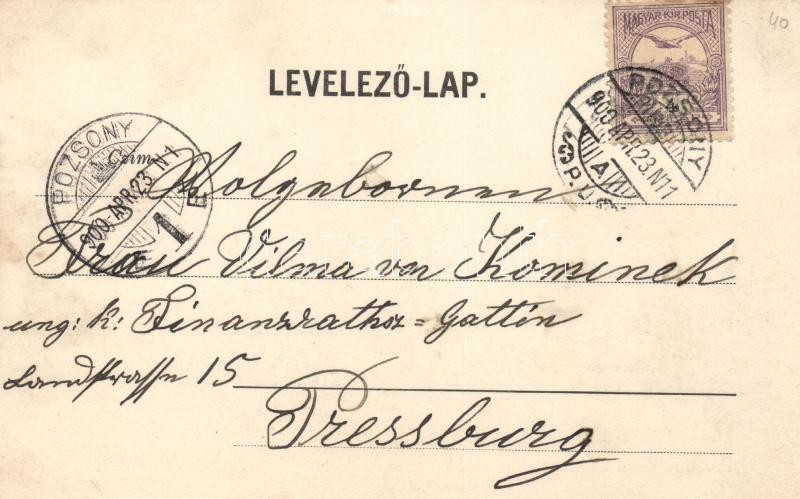 40
MAGYAR KIR. POSTA
LEVELEZŐ-LAP.
POZSONY
900 APR. 23. N11
A
POZSONY
900 APR. 23. N11
1
E
Czim
Wolgebornen
Frau Vilma von Kominek
ung: k: Finanzraths=Gattin
Landstrasse 15
Pressburg